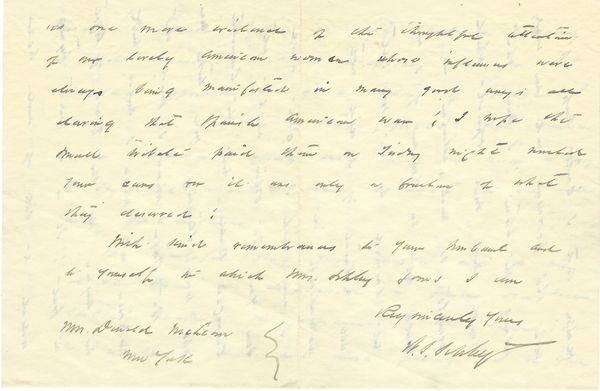 is one more evidence of the thoughtful attention
of our lovely American women whose influences were
always being manifested in many good ways all
during that Spanish American war! I hope the
small tribute paid them on Friday night reached
your ears for it was only a fraction of what
they deserved!
With kind remembrances to your husband and
to yourself in which Mrs. joins I am
Very sincerely yours
W. S.
Mrs. Donald McLean
New York